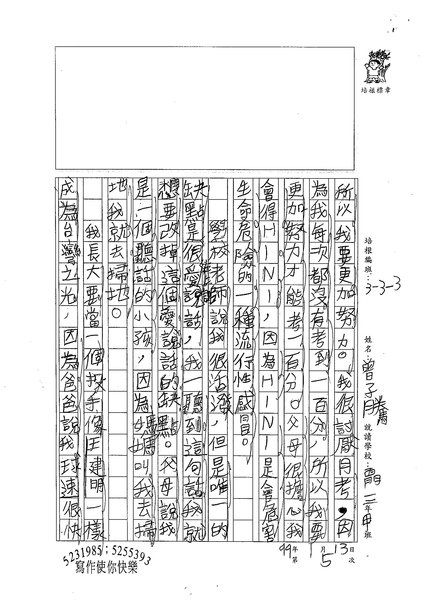 培根標章
培根編班：3-3-3
姓名：曾子勝
就讀學校：三年甲班
99年1月13日
第5次
所以我要更加努力。我很討厭月考，因
為我每次都沒有考到一百分，所以我要
更加努力才能考一百分。父母很擔心我
會得H1N1，因為H1N1是會危害
生命危險的一種流行性感冒。
學校老師說我很活潑，但是唯一的
缺點是很愛說話，我一聽到這句話我就
想要改掉這個愛說話的缺點。父母說我
是一個聽話的小孩，因為媽媽叫我去掃
地我就去掃地。
我長大要當一個投手像王建明一樣
成為台灣之光，因為爸爸說我球速很快
5231985；5255393
寫作使你快樂